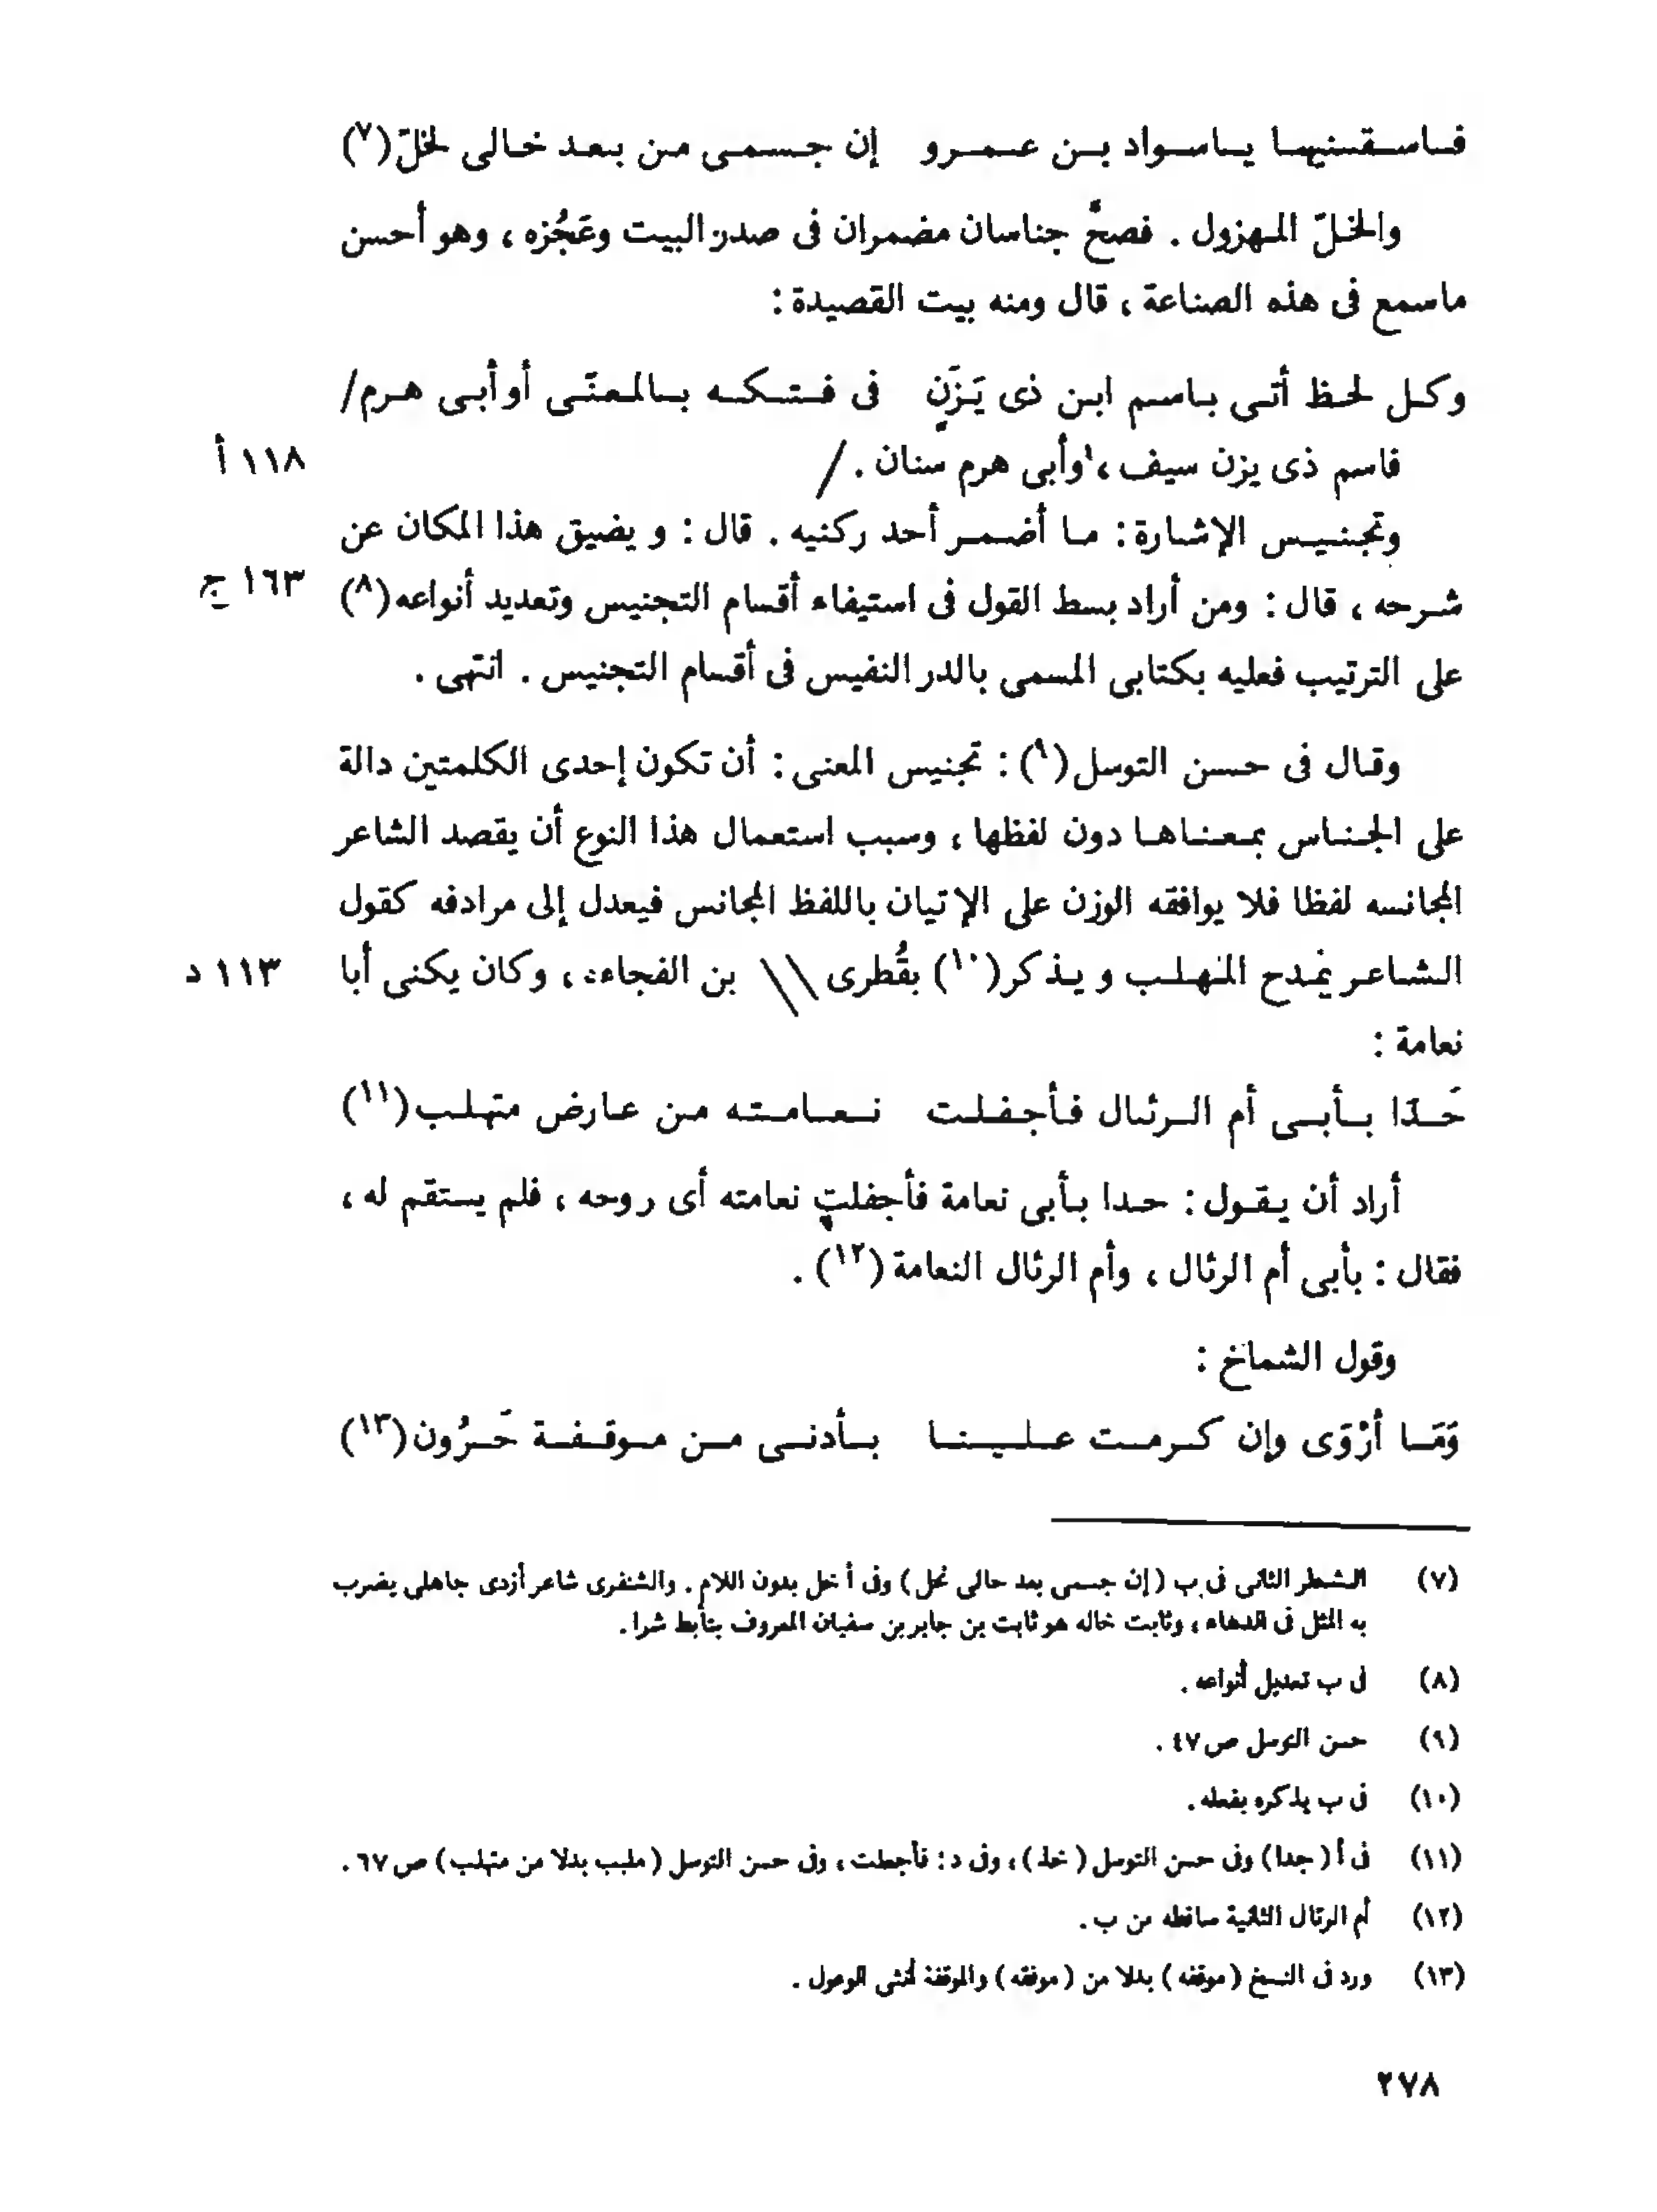 فاسقنيها ياسواد بن عمرو   إن جسمى من بعد خالى لخلّ(٧)
والخلّ المهزول . فصحَّ جناسان مضمران فى صدر البيت وعَجُزه ، وهو أحسن
ماسمع فى هذه الصناعة ، قال ومنه بيت القصيدة :
وكل لحظ أتى باسم ابن ذى يَزَنٍ   فى فتكه بالمعنّى أو أبى هرم/
١١٨ أ
فاسم ذى يزن سيف ، وأبى هرم سنان . /
وتجنيس الإشارة : ما أضمر أحد ركنيه . قال : ويضيق هذا المكان عن
١٦٣ ج
شرحه ، قال : ومن أراد بسط القول فى استيفاء أقسام التجنيس وتعديد أنواعه(٨)
على الترتيب فعليه بكتابى المسمى بالدر النفيس فى أقسام التجنيس . انتهى .
وقال فى حسن التوسل(٩) : تجنيس المعنى : أن تكون إحدى الكلمتين دالة
على الجناس بمعناها دون لفظها ، وسبب استعمال هذا النوع أن يقصد الشاعر
المجانسه لفظا فلا يوافقه الوزن على الإتيان باللفظ المجانس فيعدل إلى مرادفه كقول
الشاعر يمدح المهلب ويذكر(١٠) بقُطرى \\ بن الفجاءة ، وكان يكنى أبا
١١٣ د
نعامة :
حَدَا بأبى أم الرئال فأجفلت   نعامته من عارض متهلب(١١)
أراد أن يقول : حدا بأبى نعامة فأجفلت نعامته أى روحه ، فلم يستقم له ،
فقال : بأبى أم الرئال ، وأم الرئال النعامة (١٢) .
وقول الشماخ :
وَمَا أَرْوَى وإن كرمت علينا   بأدنى من موقفة حَرُون(١٣)
(٧) الشطر الثانى فى ب (إن جسمى بعد حالى نحل) وفى أ خل بدون اللام . والشنفرى شاعر أزدى جاهلى يضرب
به المثل فى الدهاء ، وثابت خاله هو ثابت بن جابر بن سفيان المعروف بتأبط شرا .
(٨) فى ب تعديل أنواعه .
(٩) حسن التوسل ص٤٧ .
(١٠) فى ب يذكره بفعله .
(١١) فى أ (جدا) وفى حسن التوسل (خط) ، وفى د : فأجعلت ، وفى حسن التوسل (ملبب بدلا من متهلب) ص٦٧ .
(١٢) أم الرئال الثانية ساقطه من ب .
(١٣) ورد فى النسخ (موقفه) بدلا من (موفقه) والموقفة أنثى الوعول .
٢٧٨